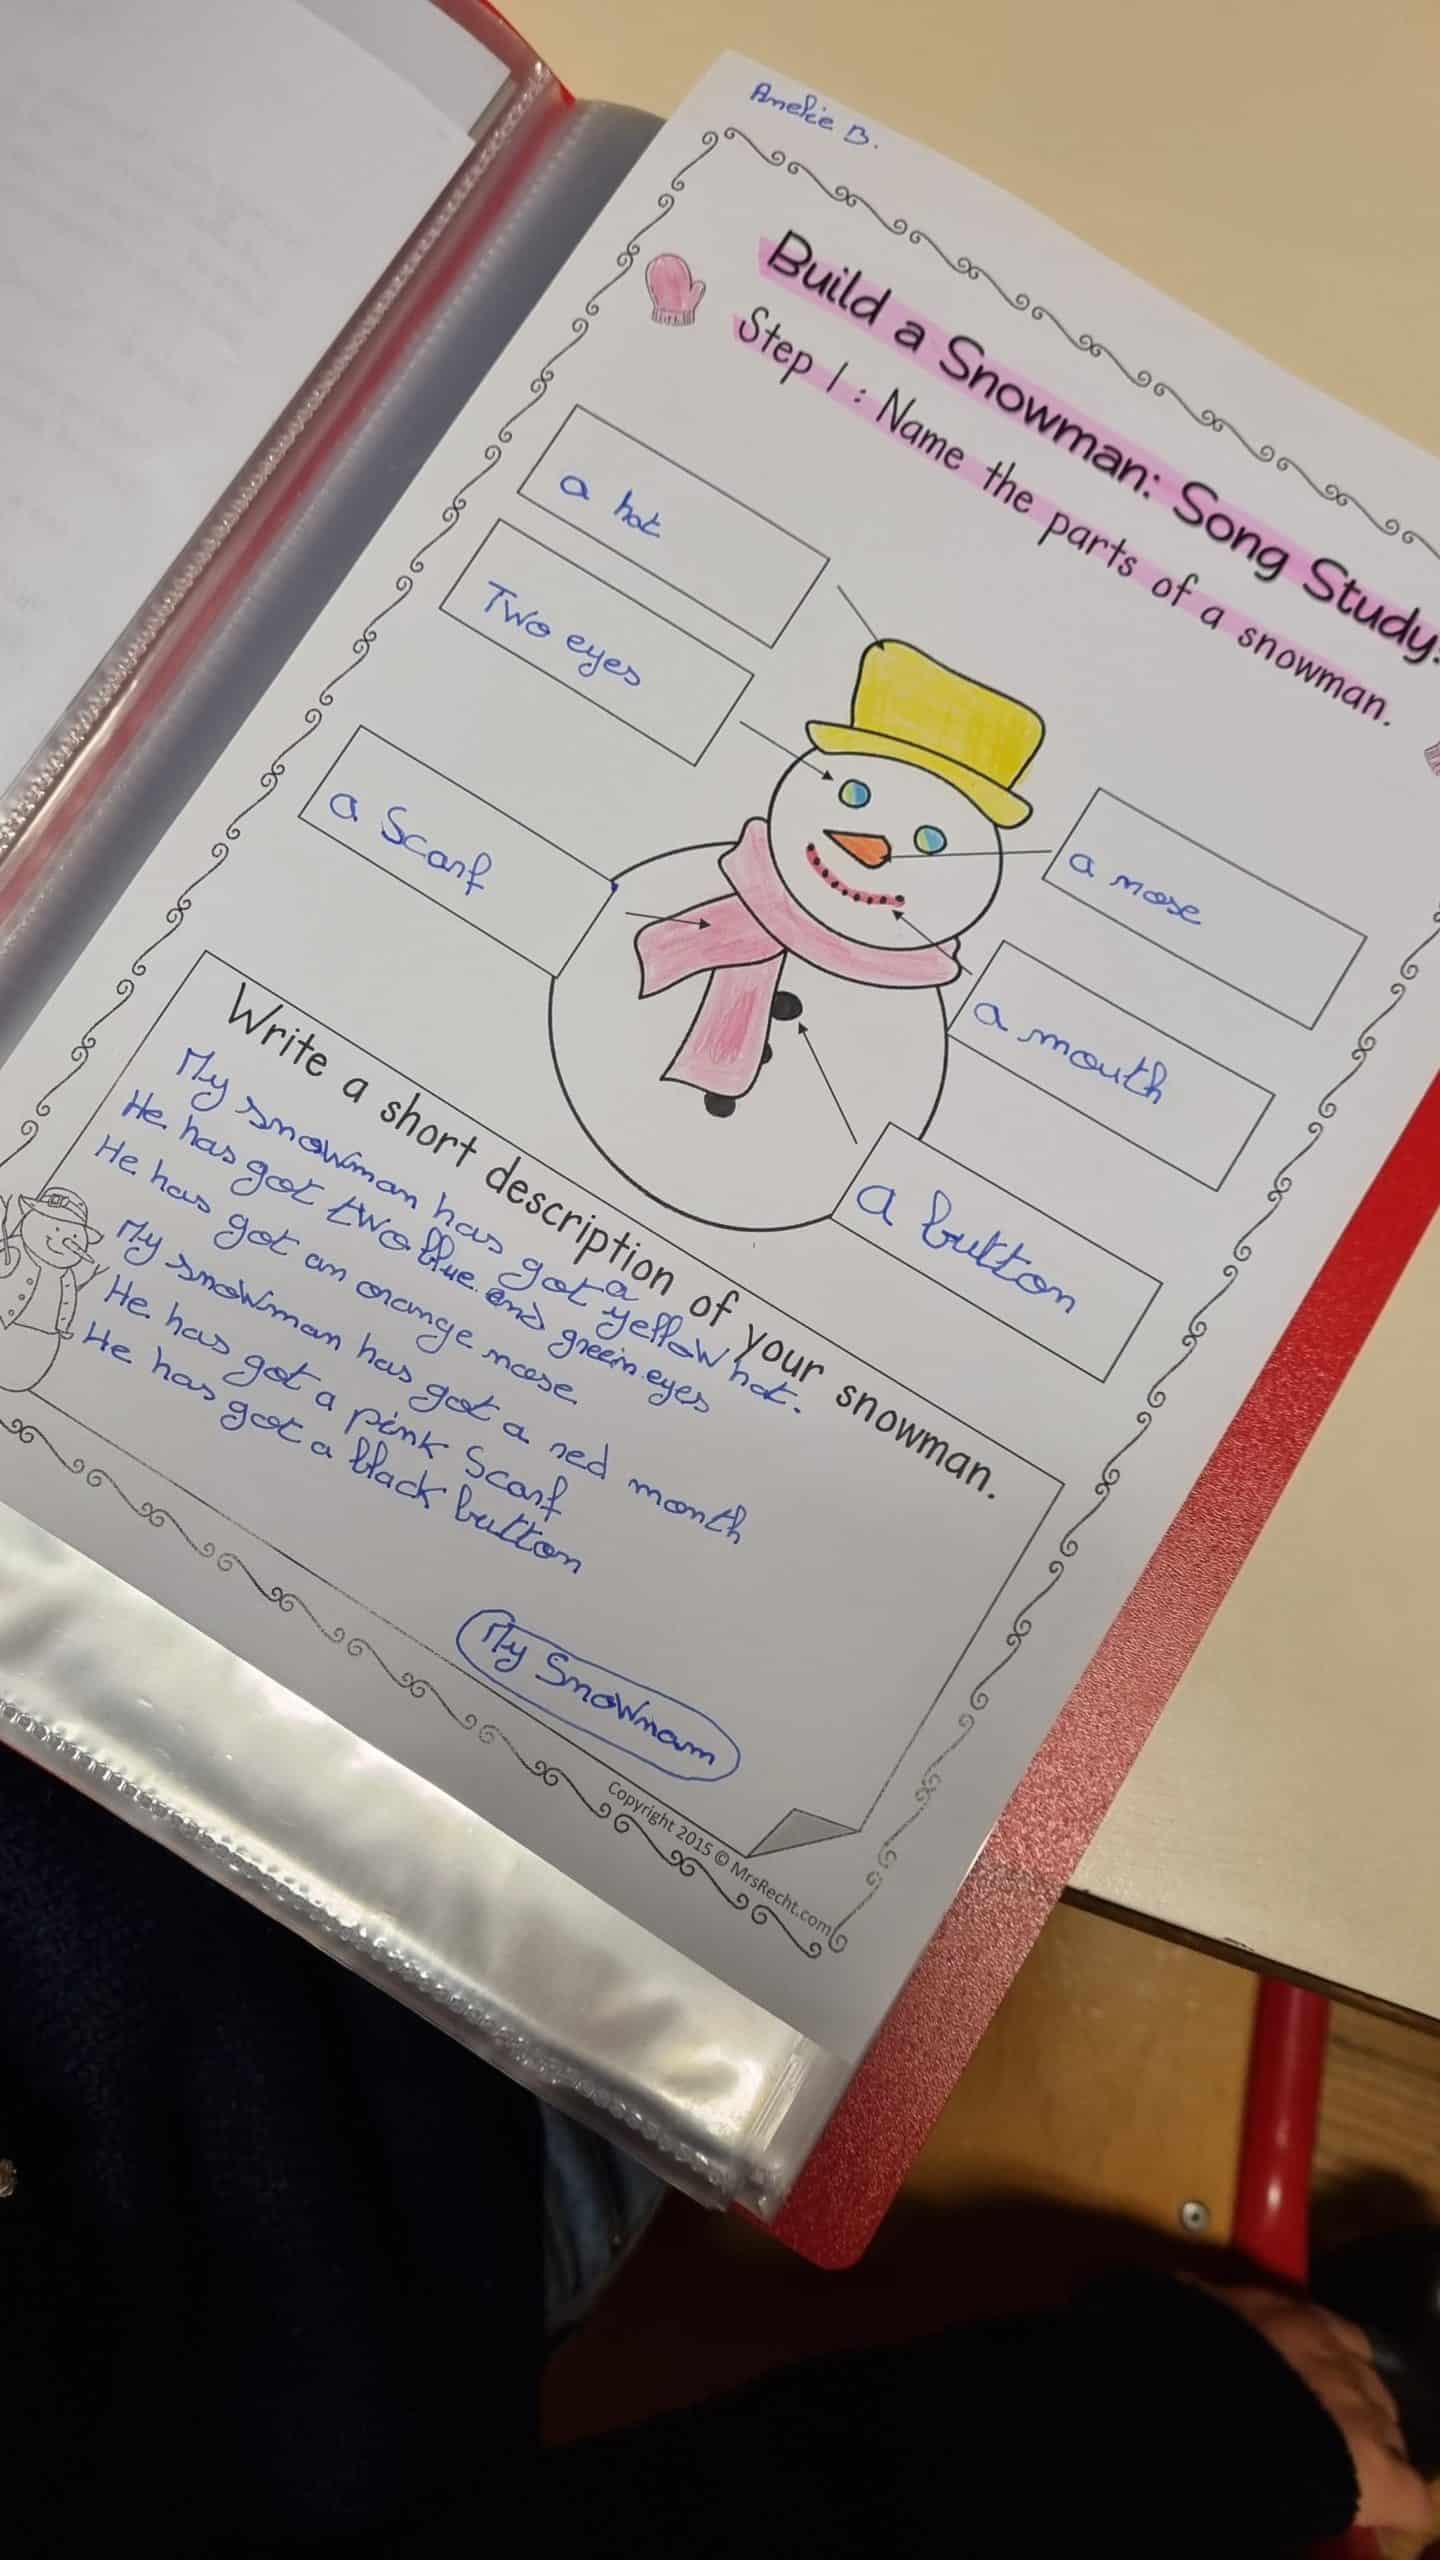 Amelie B.
Build a Snowman: Song Study:
Step 1 : Name the parts of a snowman.
a hat
Two eyes
a scarf
a nose
a mouth
a button
Write a short description of your snowman.
My snowman has got a yellow hat.
He has got two blue and green eyes
He has got an orange nose
My snowman has got a red mouth
He has got a pink scarf
He has got a black button
My Snowman
Copyright 2015 © MrsRecht.com